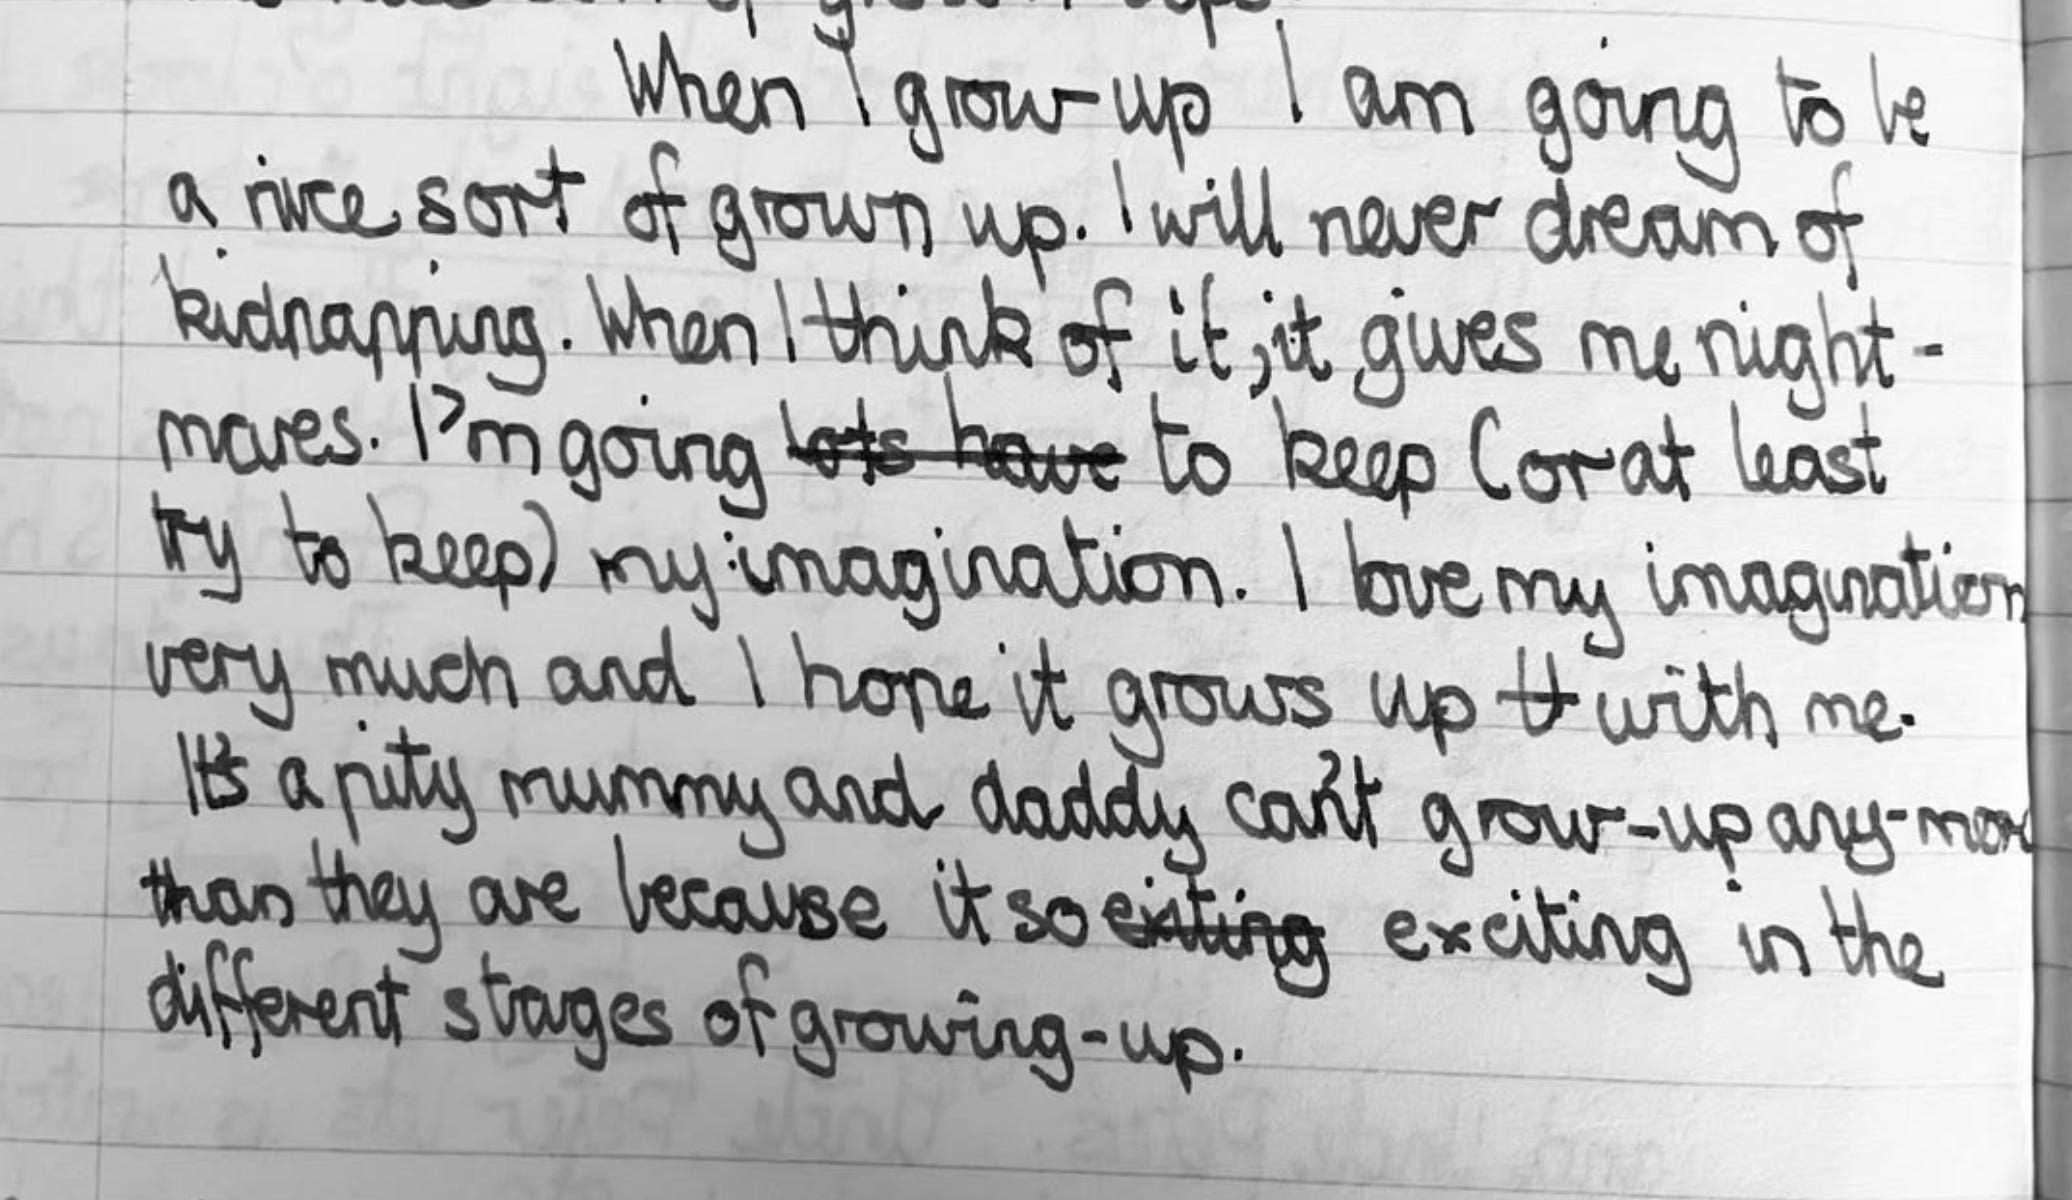 of grown ups.
When I grow-up I am going to be
a nice sort of grown up. I will never dream of
kidnapping. When I think of it, it gives me night-
mares. I'm going lots have to keep (or at least
try to keep) my imagination. I love my imagination
very much and I hope it grows up with me.
It's a pity mummy and daddy can't grow-up any-more
than they are because it so exiting exciting in the
different stages of growing-up.